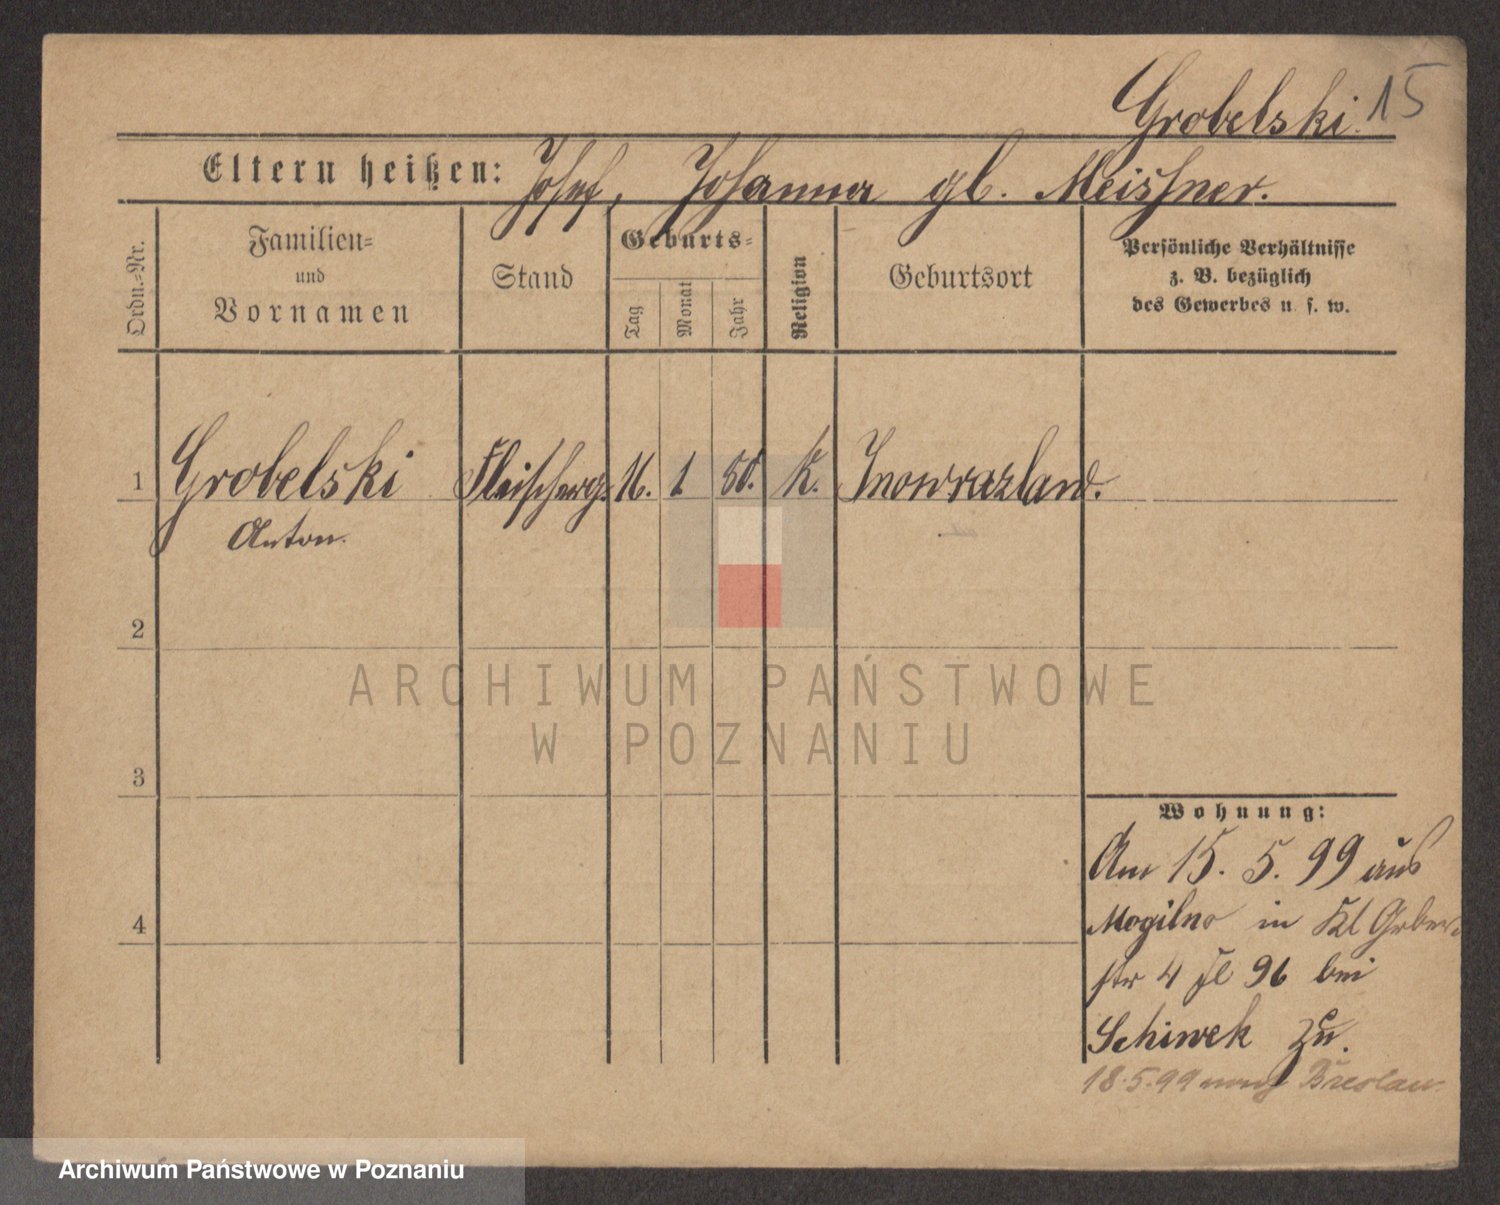 Grobelski. 15
Eltern heißen: Josef, Johanna gb. Meissner.
Ordn.-Nr.
Familien-
und
Vornamen
Stand
Geburts-
Tag
Monat
Jahr
Religion
Geburtsort
Persönliche Verhältnisse
z. B. bezüglich
des Gewerbes u. s. w.
1 Grobelski Fleischerg. 16. 1 50. K. Inowrazlaw.
Anton.
2
3
4
Wohnung:
Am 15. 5. 99 aus
Mogilno in Kl Gerber-
str 4 Fl 96 bei
Schiwek zu.
18.5.99 nach Breslau.
ARCHIWUM PAŃSTWOWE
W POZNANIU
Archiwum Państwowe w Poznaniu